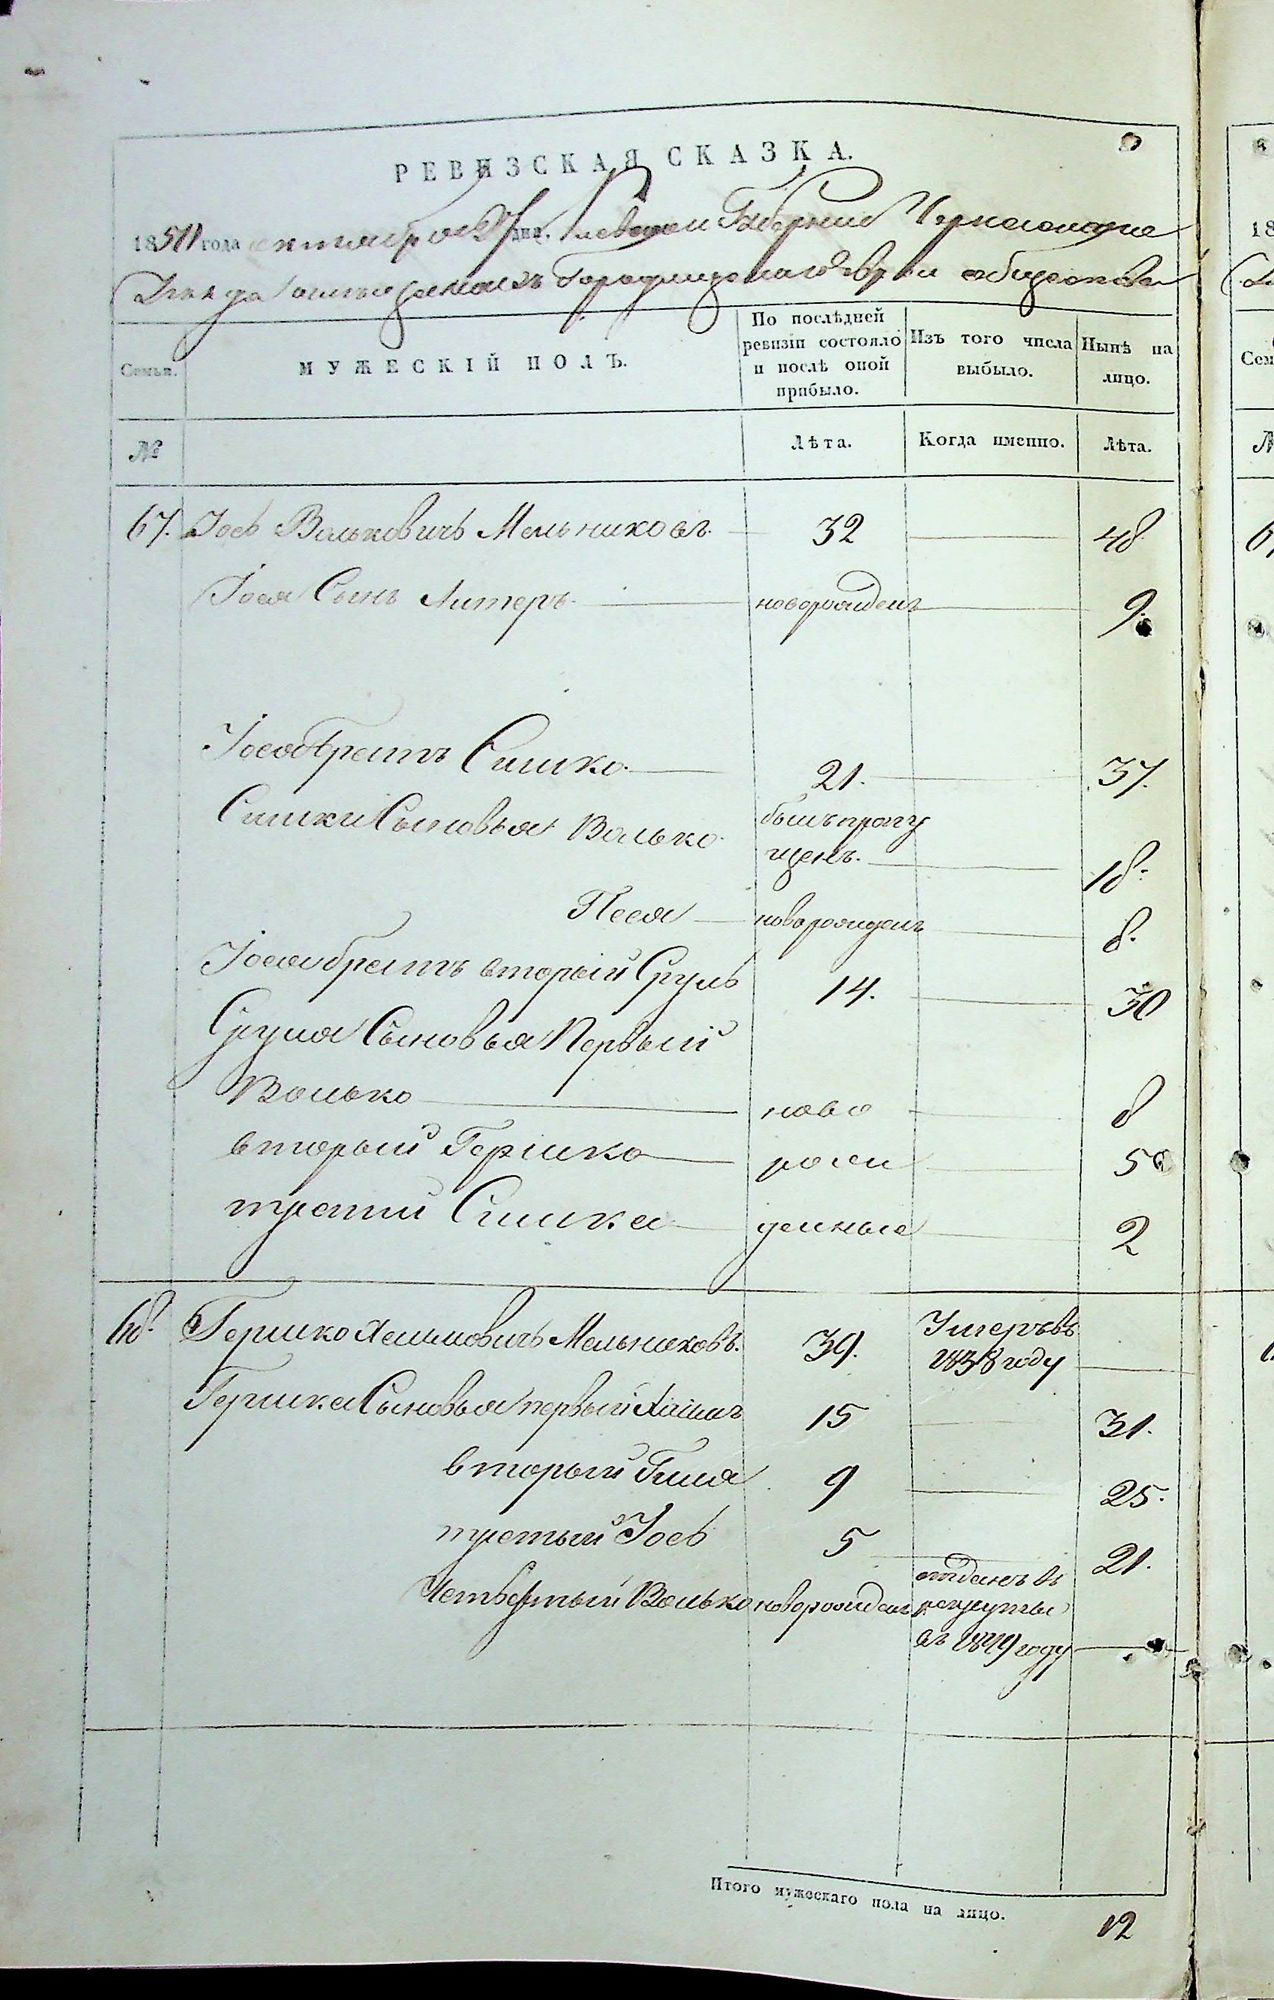 РЕВИЗСКАЯ СКАЗКА.
1850 года октября 27 дня. Киевской Губернии Черкасского
Уезда мещанахъ Городищенского Евр. общества
Семьи.
МУЖЕСКІЙ ПОЛЪ.
По послѣдней ревизіи состояло и послѣ оной прибыло.
Изъ того числа выбыло.
Нынѣ на лицо.
№
Лѣта.
Когда именно.
Лѣта.
67. Іосъ Вольковичъ Мельниковъ 32 48
Іося Сынъ Литеръ новорожденъ 9.
Іося братъ Симко 21. 37.
Симки Сыновья Волько былъ пропу
щенъ. 18.
Песя новорожденъ 8.
Іося братъ вторый Сруль 14. 30
Сруля Сыновья Первый
Волько ново 8
вторый Гершко рож 5
третий Симка денные 2
68. Гершко Хаимовичъ Мельниковъ. 39. Умеръ въ
1838 году
Гершка Сыновья первый Хаимъ 15 31.
вторый Гиля 9 25.
третый Іось 5 21.
Четвертый Волько новорожденъ отданъ въ
рекруты
въ 1849 году
Итого мужескаго пола на лицо. 12